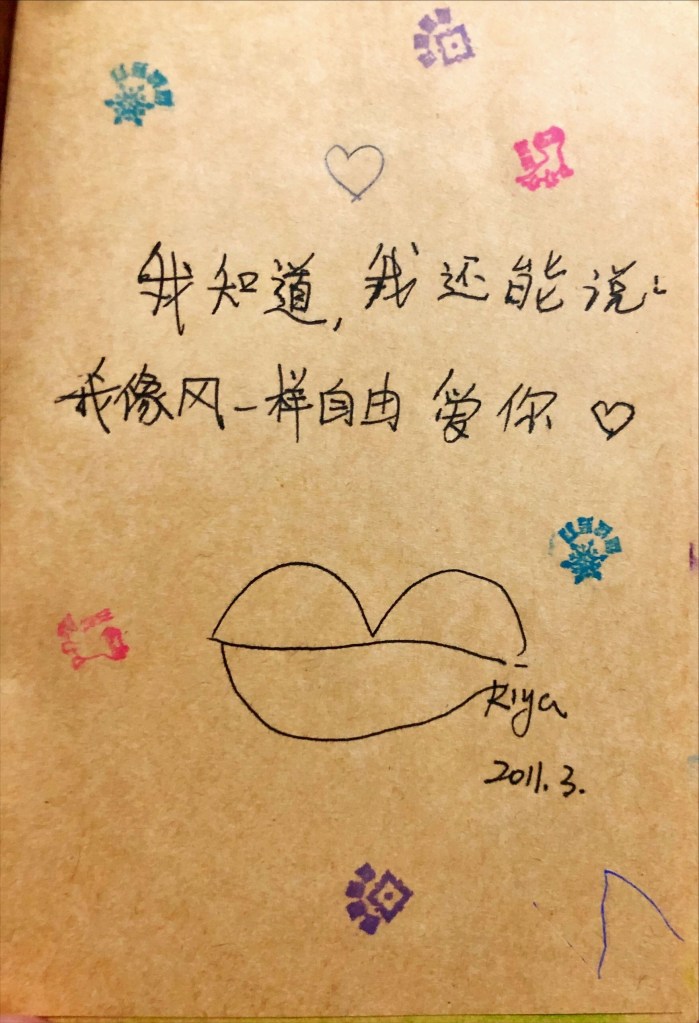 我知道，我还能说：
我像风一样自由爱你♡
Riya
2011.3.